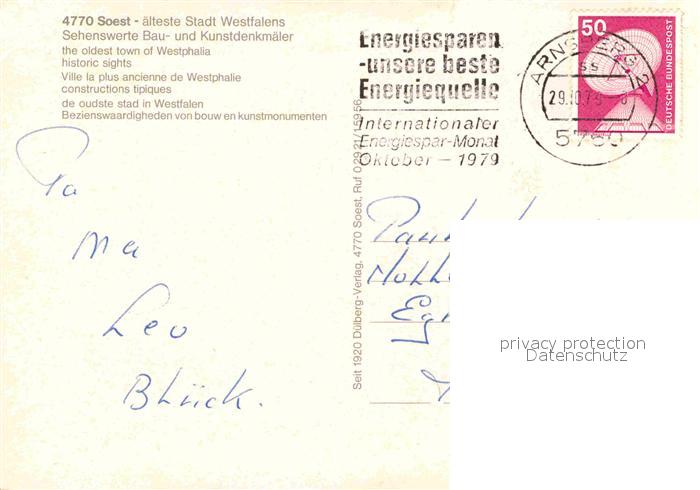 4770 Soest - älteste Stadt Westfalens
Sehenswerte Bau- und Kunstdenkmäler
the oldest town of Westphalia
historic sights
Ville la plus ancienne de Westphalie
constructions tipiques
de oudste stad in Westfalen
Bezienswaardigheden von bouw en kunstmonumenten
Energiesparen
-unsere beste
Energiequelle
Internationaler
Energiespar-Monat
Oktober - 1979
ARNSBERG 2
ss
29.10.79
5760
50
DEUTSCHE BUNDESPOST
Seit 1920 Dülberg-Verlag, 4770 Soest, Ruf 02921/15956
Pa
Ma
Leo
privacy protection
Datenschutz